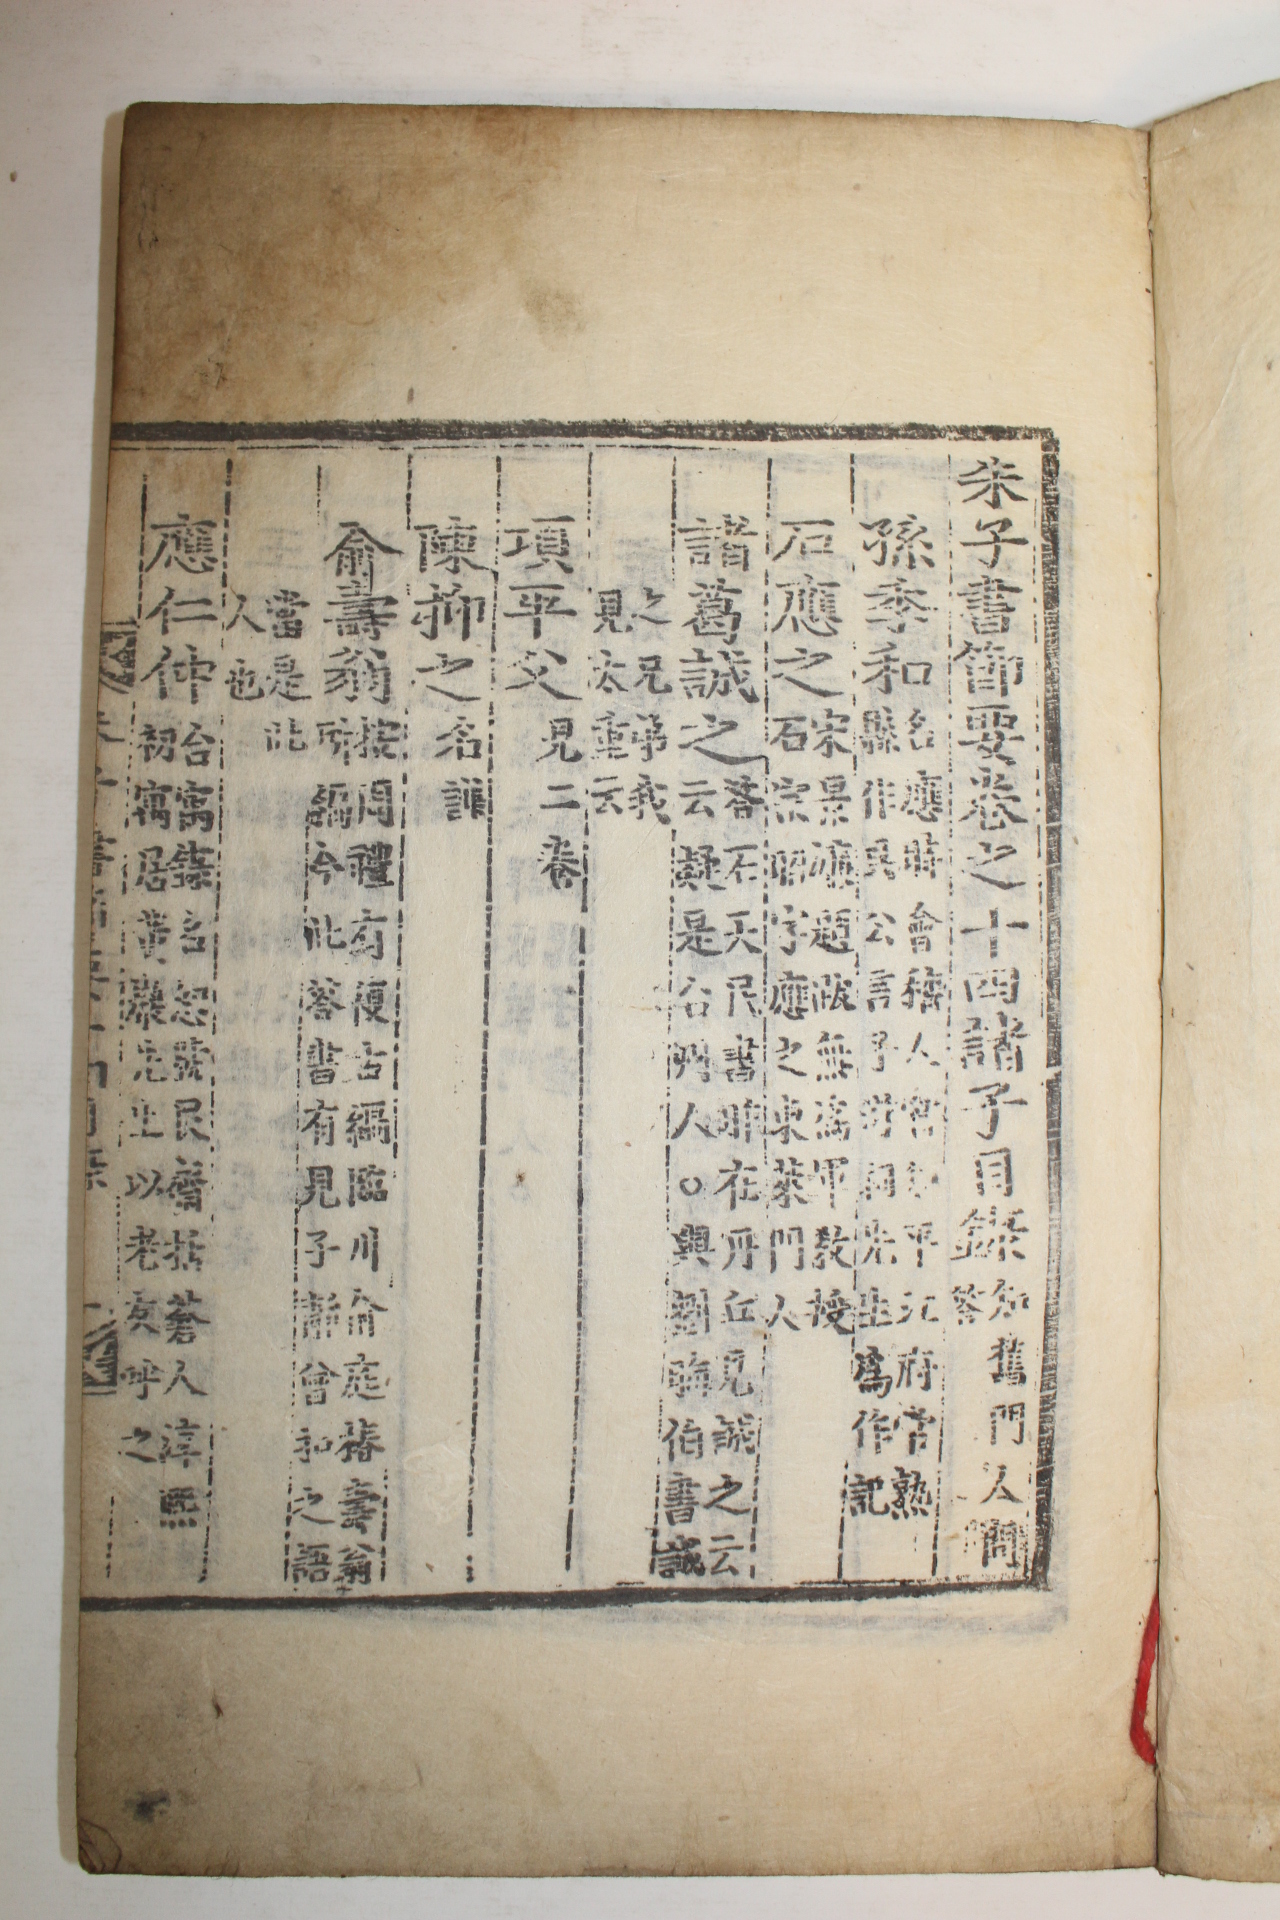 朱子書節要卷之十四諸子目錄知舊門人問答
孫季和名應時會稽人官知平江府常熟縣作吳公言子祠問先生爲作記
石應之宋景濂題跋無爲軍教授石宗昭字應之東萊門人
諸葛誠之答石天民書昨在丹丘見誠之云云疑是台州人○與劉晦伯書誠
之兄弟義見太重云
項平父見二卷
陳抑之名謙
俞壽翁按周禮有復古編臨川俞庭椿壽翁所編今此答書有見子靜曾扣之語
當是此人也
應仁仲台寓錄名恕號艮齋括蒼人淳熙初寓居黃巖先生以老友呼之